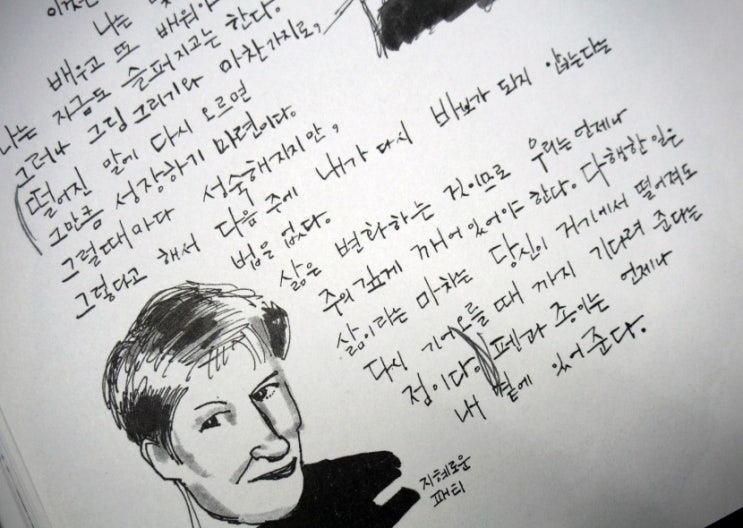 나는
배우고 또 배워야
나는 지금도 슬퍼지고는 한다.
그러나 그림 그리기와 마찬가지로,
떨어진 말에 다시 오르면
그만큼 성장하기 마련이다.
그럴때마다 성숙해지지만,
그렇다고 해서 다음 주에 내가 다시 바보가 되지 않는다는
법은 없다.
삶은 변화하는 것이므로 우리는 언제나
주의 깊게 깨어 있어야 한다. 다행한 일은
삶이라는 마차는 당신이 거기에서 떨어져도
다시 기어오를 때 까지 기다려 준다는
점이다. 펜과 종이는 언제나
내 곁에 있어 준다.
지혜로운
패티